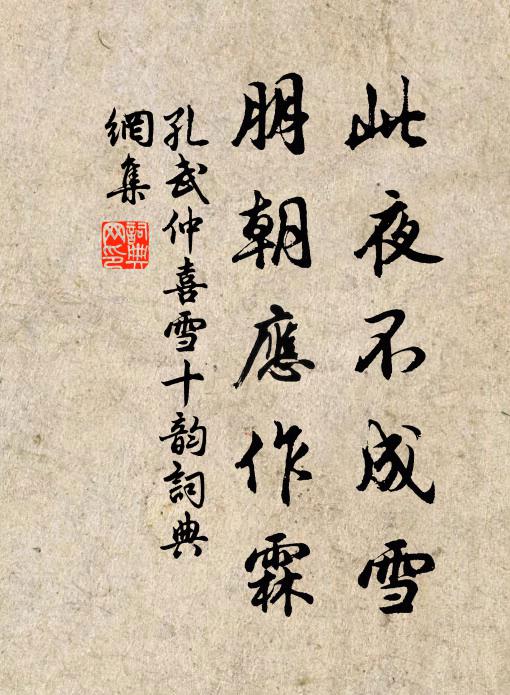 此夜不成雪
朋朝應作霖
孔武仲喜雪十韵詞典
網集
詞典
网印